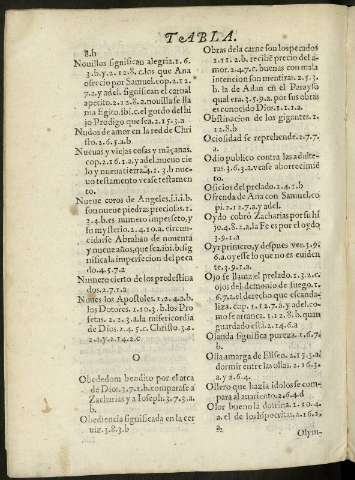 TABLA.
8.b
Nouillos significan alegria.1.6.
3.b.y.2.12.8.c.los que Ana
ofrecio por Samuel.cop.2.12
7.2.y adel.significan el carnal
apetito.2.12.8.2.nouilla se lla
ma Egito.ibi.c.el gordo del hi
jo Prodigo que sea.2.15.3.a
Nudos de amor en la red de Chri
sto.2.6.5.a.b
Nueuas y viejas cosas y mãçanas.
cop.2.16.1.2.y adel.nueuo cie
lo y nueua tierra.4.2 1.3.b nue-
uo testamento vease testamen
to.
Nueue coros de Angeles.
son nueue piedras preciosas.1.
3.4.b.es numero imperfeto, y
so mysterio.2.4.10.a.circun-
cidase Abrahan de nouenta
y nueue años, que sea.ibi.b.sig
nifica la imperfecion del peca
do.4.5.7.2
Numero cierto de los predestina
dos.2.7.1.2
Nubes los Apostoles.1.2.4.2.b.
los Dotores.1.10.3.b.los Pro
fetas.2.2.3.2.la misericordia
de Dios.2.4.5.c.Christo.3.2.
2.1.y.2.14.2.c
O
Obededom bendito por el arca
de Dios.3.7.1.b.comparase a
Zacharias y a Ioseph.3.7.3.a.
b.
Obediencia significada en la cer
uiz.3.8.3.b
Obras de la carne son los pecados
2.11.2.b. recibe precio del a-
mor.2.4.7.c. buenas con mala
intencion son mentiras.2.5.3.
b. la de Adan en el Parayso
qual era.3.5.9.a. por sus obras
es conocido Dios.1.1.1.a
Obstinacion de los gigantes.2.
12.8.b
Ociosidad se reprehende.2.7.7
.a.
Odio publico contra las adulte-
ras.3.6.3.a.vease aborrecimie
to.
Oficios del prelado.2.4.1.b
Ofrenda de Ana con Samuel.co
pi.2.12.7.2.y adel.
Oydo cobrò Zacharias por su hi
jo.4.8.2.a.la Fe es por el oydo
3.9.1.a
Oyr primero, y despues ver.3.9.
6.a.oyesse lo que no es euiden
te.3.9.1.a
Ojo se llama el prelado.1.3.2.c.
ojos del demonio de fuego.1.
6.7.2.el derecho que escanda-
liza. cap. 1.12.7.b.y adel.co-
mo se arranca.1.12.8.b. quan
guardado està.2.14.6.a
Olanda significa pureza.1.6.7.
b.
Olla amarga de Eliseo.2.15.3.a.
dormir entre las ollas.2.16.3.
a.y.2.6.4.
Ollero que hazia idolos se com-
para al auariento.2.6.4.d
Olor bueno la dotrina.2.10.4.
a.el de los hipocritas.2.16.2.
Olym-